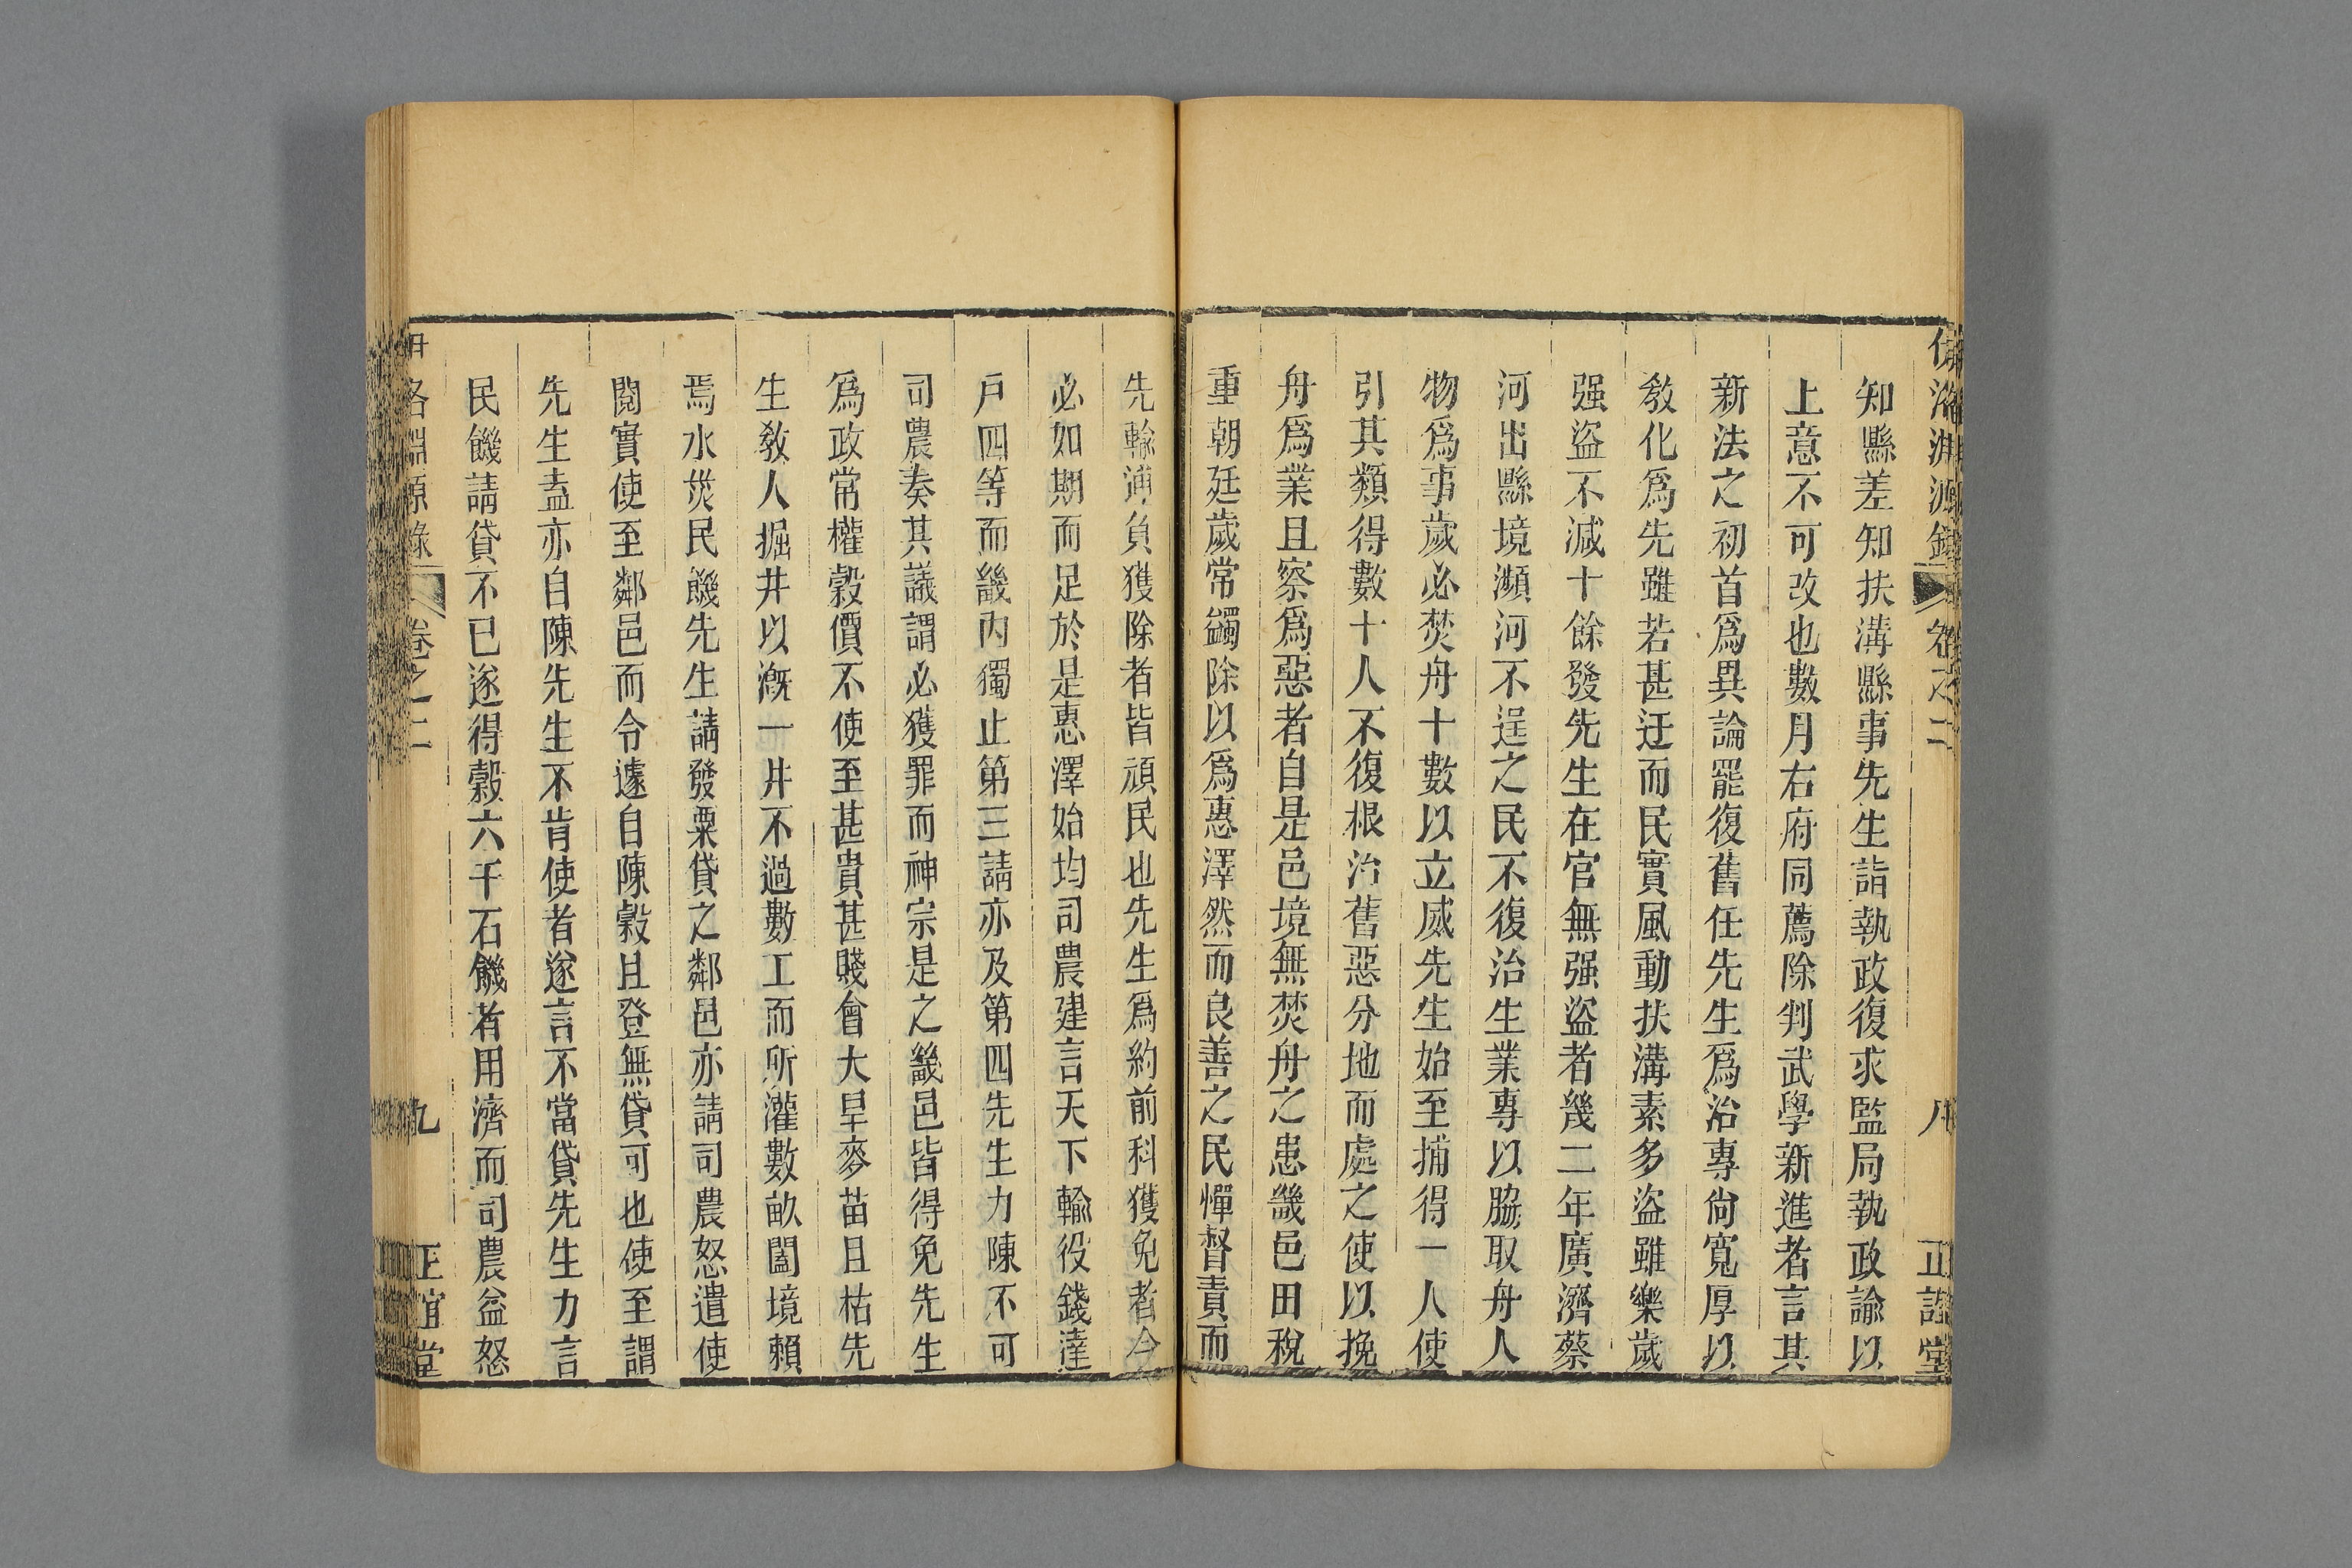 伊洛淵源錄 卷之二 八 正誼堂
知縣差知扶溝縣事先生詣執政復求監局執政諭以
上意不可改也數月右府同薦除判武學新進者言其
新法之初首爲異論罷復舊任先生爲治專尚寬厚以
敎化爲先雖若甚迂而民實風動扶溝素多盜雖樂歲
强盜不減十餘發先生在官無强盜者幾二年廣濟蔡
河出縣境瀕河不逞之民不復治生業專以脇取舟人
物爲事歲必焚舟十數以立威先生始至捕得一人使
引其類得數十人不復根治舊惡分地而處之使以挽
舟爲業且察爲惡者自是邑境無焚舟之患畿邑田稅
重朝廷歲常蠲除以爲惠澤然而良善之民憚督責而
先輸逋負獲除者皆頑民也先生爲約前科獲免者今
必如期而足於是惠澤始均司農建言天下輸役錢達
戸四等而畿內獨止第三請亦及第四先生力陳不可
司農奏其議謂必獲罪而神宗是之畿邑皆得免先生
爲政常權穀價不使至甚貴甚賤會大旱麥苗且枯先
生敎人掘井以漑一井不過數工而所灌數畝闔境賴
焉水災民饑先生請發粟貸之鄰邑亦請司農怒遣使
閱實使至鄰邑而令遽自陳穀且登無貸可也使至謂
先生盍亦自陳先生不肯使者遂言不當貸先生力言
民饑請貸不已遂得穀六千石饑者用濟而司農益怒
伊洛淵源錄 卷之二 九 正誼堂